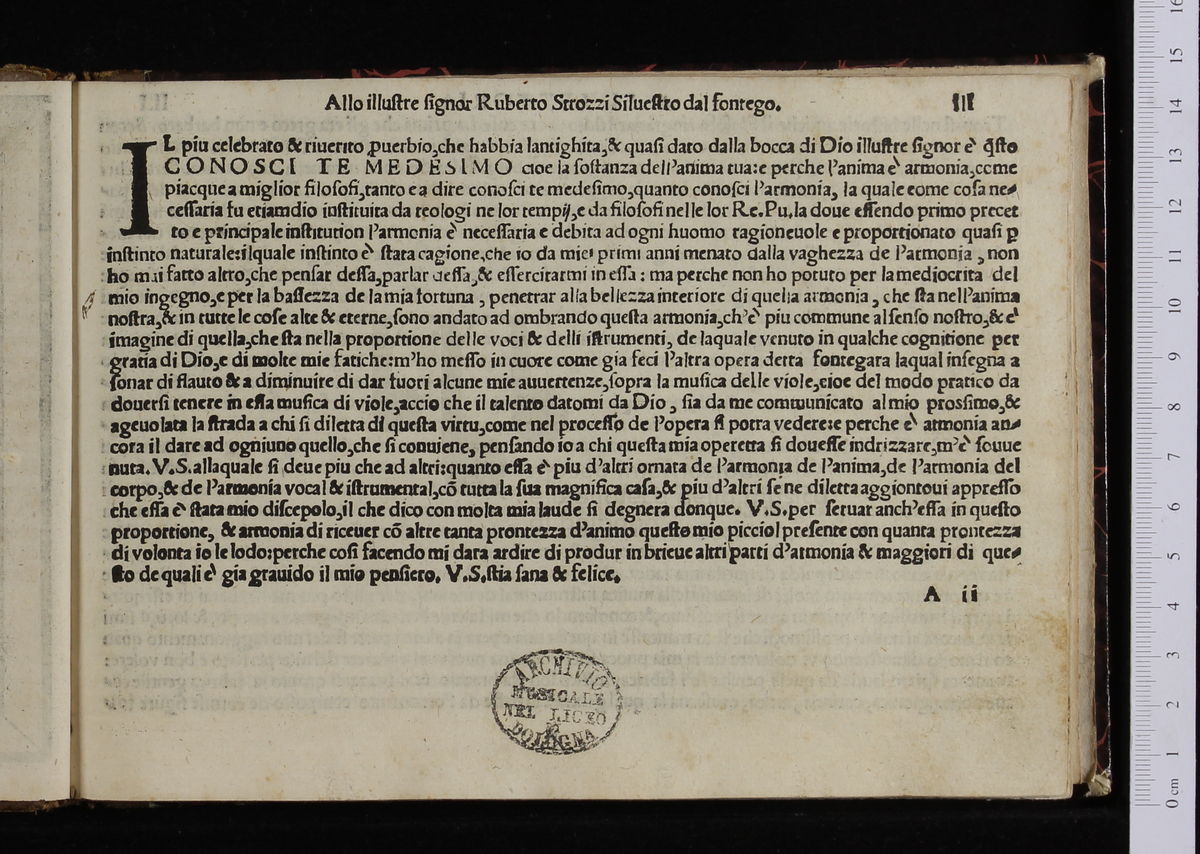 Allo illuſtre ſignor Ruberto Strozzi Silueſtro dal fontego. III
IL piu celebrato & riuerito ꝓuerbio,che habbia lantighita,& quaſi dato dalla bocca di Dio illuſtre ſignor è q̃ſto
CONOSCI TE MEDESIMO cioe la ſoſtanza dell'anima tua:e perche l'anima è armonia,come
piacque a miglior filoſofi,tanto e a dire conoſci te medeſimo,quanto conoſci l'armonia, la quale come coſa ne-
ceſſaria fu etiamdio inſtituita da teologi ne lor tempij,e da filoſofi nelle lor Re.Pu.la doue eſſendo primo precet
to e principale inſtitution l'armonia è neceſſaria e debita ad ogni huomo ragioneuole e proportionato quaſi ꝑ
inſtinto naturale:ilquale inſtinto è ſtata cagione,che io da miei primi anni menato dalla vaghezza de l'armonia , non
ho mai fatto altro,che penſar deſſa,parlar deſſa,& eſſercitarmi in eſſa : ma perche non ho potuto per la mediocrita del
mio ingegno,e per la baſſezza de la mia fortuna , penetrar alla bellezza interiore di quella armonia , che ſta nell'anima
noſtra,& in tutte le coſe alte & eterne,ſono andato ad ombrando queſta armonia,ch'è piu commune al ſenſo noſtro,& è
imagine di quella,che ſta nella proportione delle voci & delli iſtrumenti, de laquale venuto in qualche cognitione per
gratia di Dio,e di molte mie fatiche:m'ho meſſo in cuore come gia feci l'altra opera detta fontegara laqual inſegna a
ſonar di flauto & a diminuire di dar fuori alcune mie auuertenze,ſopra la muſica delle viole,cioe del modo pratico da
douerſi tenere in eſſa muſica di viole,accio che il talento datomi da Dio , ſia da me communicato al mio proſſimo,&
ageuolata la ſtrada a chi ſi diletta di queſta virtu,come nel proceſſo de l'opera ſi potra vedere:e perche è armonia an-
cora il dare ad ogniuno quello,che ſi conuiene, penſando io a chi queſta mia operetta ſi doueſſe indrizzare,m'è ſouue
nuta. V.S.allaquale ſi deue piu che ad altri:quanto eſſa è piu d'altri ornata de l'armonia de l'anima,de l'armonia del
corpo,& de l'armonia vocal & iſtrumental,cõ tutta la ſua magnifica caſa,& piu d'altri ſe ne diletta aggiontoui appreſſo
che eſſa è ſtata mio diſcepolo,il che dico con molta mia laude ſi degnera donque. V.S.per ſeruar anch'eſſa in queſto
proportione, & armonia di riceuer cõ altre tanta prontezza d'animo queſto mio picciol preſente con quanta prontezza
di volonta io le lodo:perche coſi facendo mi dara ardire di produr in brieue altri parti d'armonia & maggiori di que-
ſto de quali è gia grauido il mio penſiero. V.S.ſtia ſana & felice.
A ii
ARCHIVIO
MUSICALE
NEL LICEO
DI
BOLOGNA
0 cm 1 2 3 4 5 6 7 8 9 10 11 12 13 14 15 16